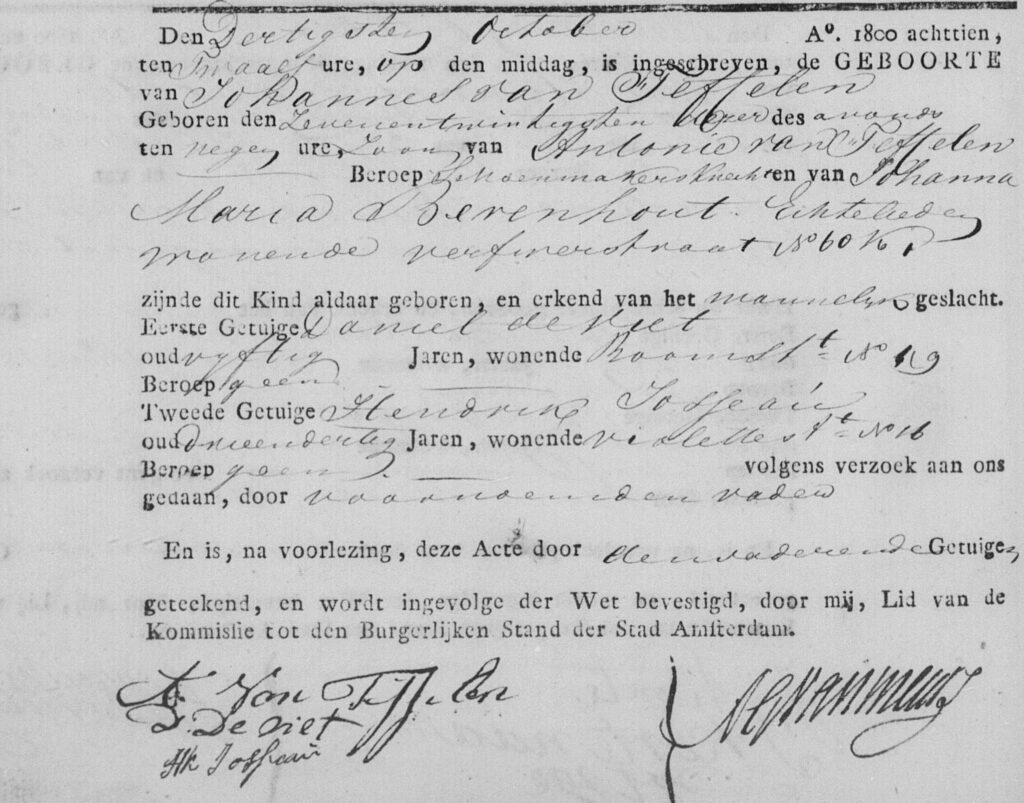 Den Dertigsten October A°. 1800 achttien,
ten Twaalf ure, op den middag, is ingeschreven, de GEBOORTE
van Johannes van Teffelen
Geboren den Zevenentwintigsten dezer des avonds
ten negen ure, Zoon van Antonie van Teffelen
Beroep Schoenmakersknecht en van Johanna
Maria Berenhout. Echtelieden
wonende verwerstraat N° 60 K 1
zijnde dit Kind aldaar geboren, en erkend van het mannelijk geslacht.
Eerste Getuige Daniel de Viet
oud vyftig Jaren, wonende Boomst N°
Beroep geen
Tweede Getuige Hendrik Josseau
oud drieendertig Jaren, wonende violettest N° 16
Beroep geen volgens verzoek aan ons
gedaan, door voornoemden vader
En is, na voorlezing, deze Acte door den vader ende Getuigen
geteekend, en wordt ingevolge der Wet bevestigd, door mij, Lid van de
Kommissie tot den Burgerlijken Stand der Stad Amsterdam.
A Van Teffelen
D. De Viet
Hk Josseau